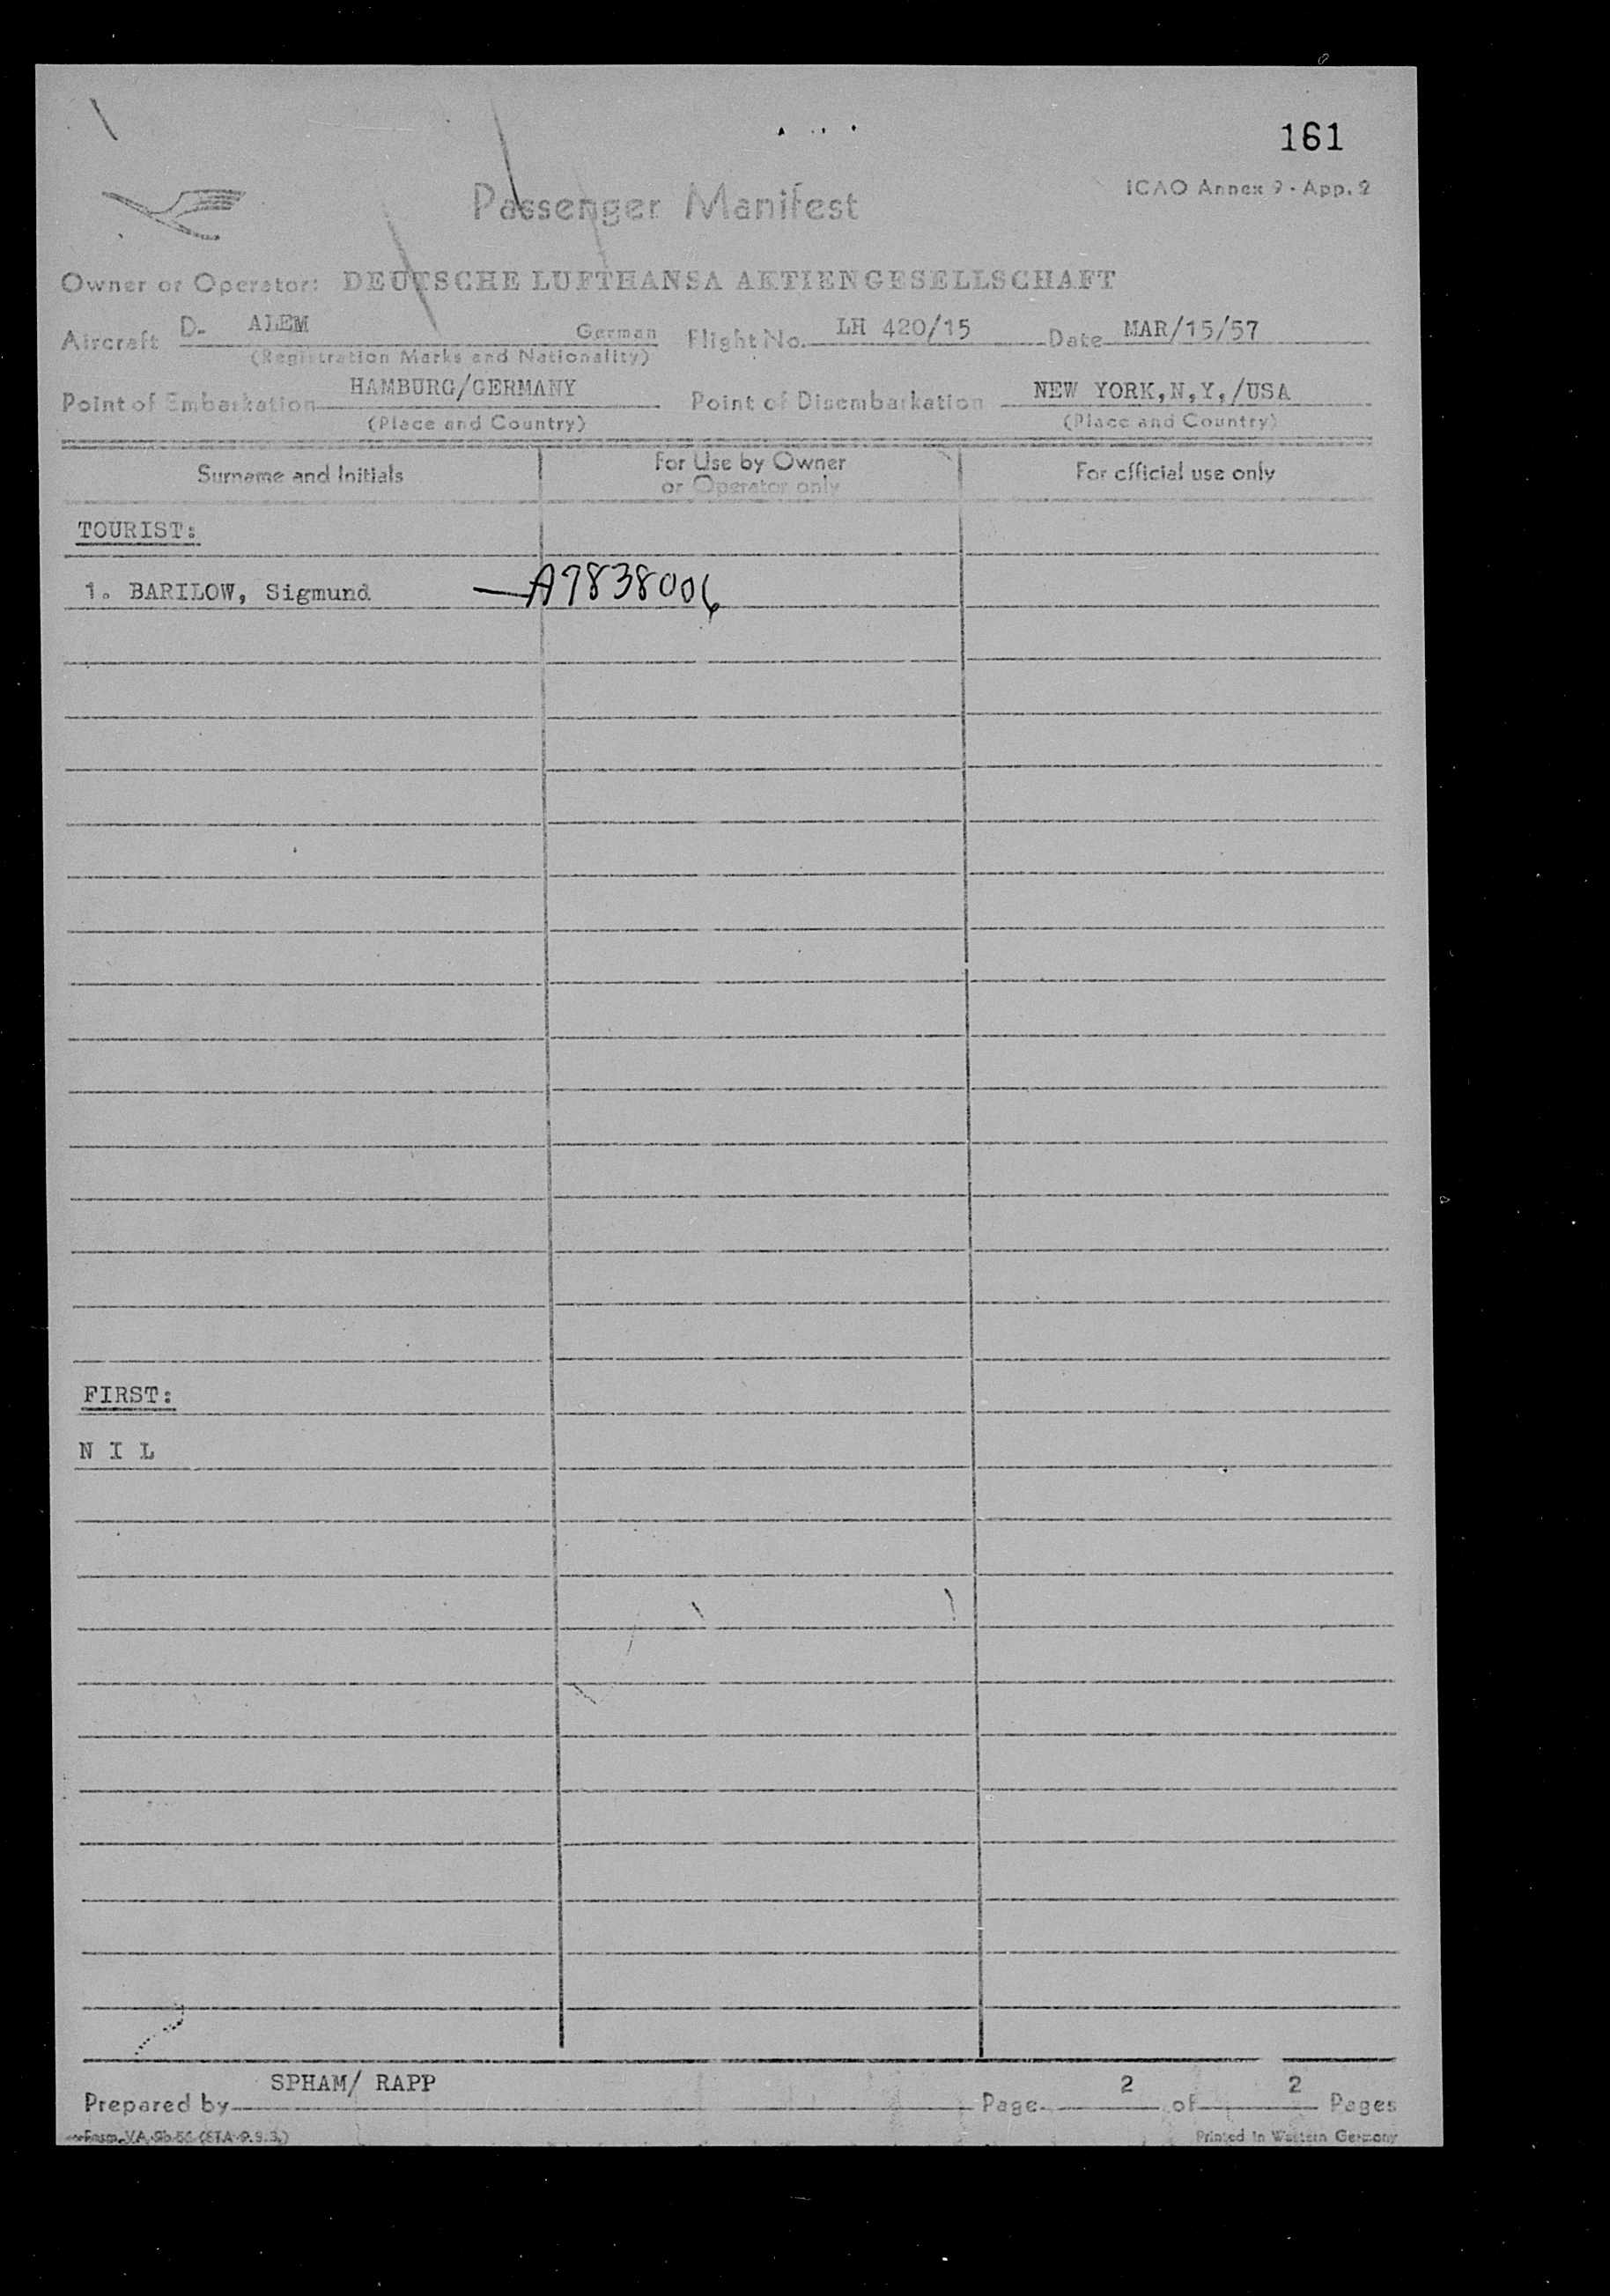 161
ICAO Annex 9 - App. 2
Passenger Manifest
Owner or Operator: DEUTSCHE LUFTHANSA AKTIENGESELLSCHAFT
Aircraft D- ALEM German Flight No. LH 420/15 Date MAR/15/57
(Registration Marks and Nationality)
Point of Embarkation HAMBURG/GERMANY Point of Disembarkation NEW YORK,N,Y,/USA
(Place and Country) (Place and Country)
Surname and Initials For Use by Owner or Operator only For official use only
TOURIST:
1. BARILOW, Sigmund — A7838006
FIRST:
N I L
Prepared by SPHAM/ RAPP Page 2 of 2 Pages
Printed in Western Germany